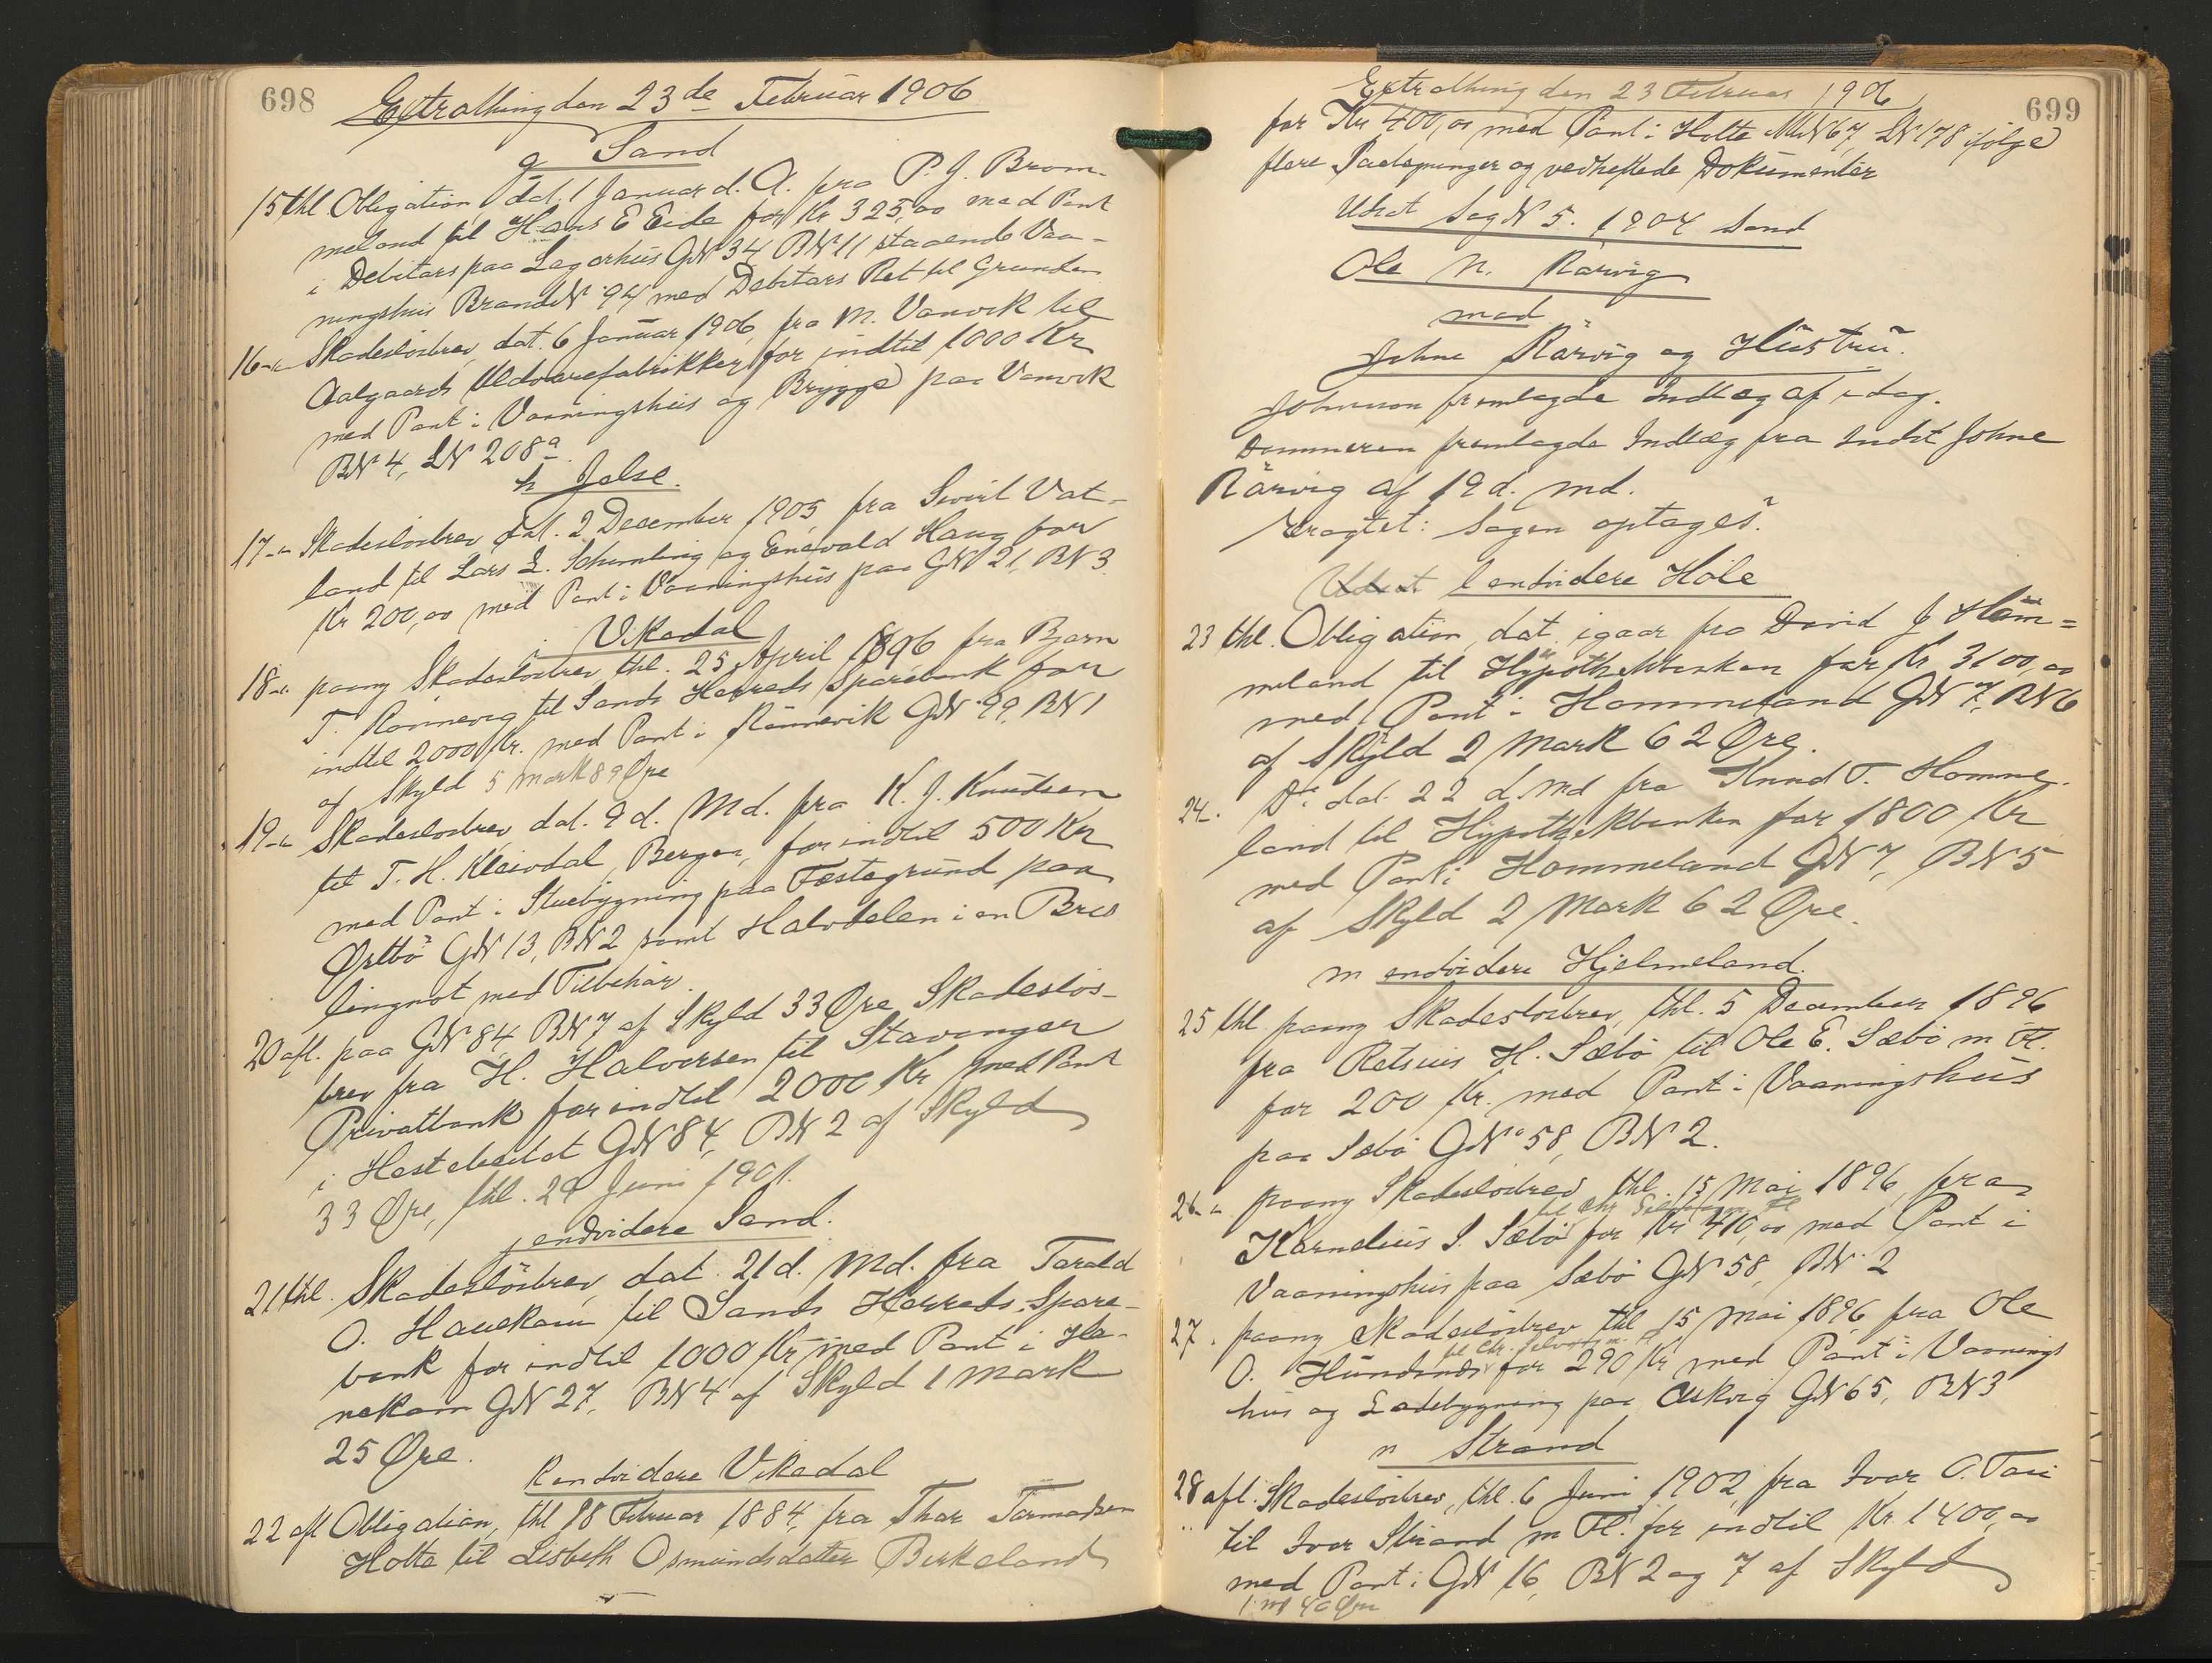 698
Extrathing den 23de Februar 1906
g Sand
15 thl. Obligation dat. 1 Januar d. A. fra P. J. Brom-
meland til Hans E Eide for Kr 325,00 med Pant
i Debitors paa Lagerhus GN 34 BN 11 staaende Vaa-
ningshus BrandN 94 med Debitors Ret til Grunden
16 -"- Skadesløsbrev, dat. 6 Januar 1906, fra M. Vanvik til
Aalgaards Uldvarefabrikker for indtil 1000 Kr
med Pant i Vaaningshus og Brygge paa Vanvik
BN 4, LN 208a.
h Jelse.
17 -"- Skadesløsbrev dat. 2 December 1905 fra Sivert Vat-
land til Lars L. Schumling og Enevald Haug for
Kr 200,00 med Pant i Vaaningshus paa GN 21, BN 3.
i Vikedal
18 -"- paany Skadesløsbrev thl. 25 April 1896 fra Bjørn
T. Rønnevig til Sands Herreds Sparebank for
indtil 2000 Kr. med Pant i Rønnevik GN 99, BN 1
af Skyld 5 Mark 89 Øre
19 -"- Skadesløsbrev, dat. 9 d. Md. fra K. J. Knudsen
til T. H. Kleivdal, Bergen, for indtil 500 Kr
med Pant i Stuebygning paa Festegrund paa
Ørebø GN 13, BN 2 samt Halvdelen i en Bris-
lingnot med Tilbehør.
20 afl. paa GN 84, BN 7 af Skyld 33 Øre Skadesløs-
brev fra H. Halvorsen til Stavanger
Privatbank for indtil 2000 Kr med Pant
i Hestebeitet GN 84, BN 2 af Skyld
33 Øre, thl. 29 Juni 1901.
j endvidere Sand.
21 thl. Skadesløsbrev, dat. 21 d. Md. fra Tarald
O. Hauekam til Sands Herreds Spare-
bank for indtil 1000 Kr med Pant i Ha-
nekam GN 27, BN 4 af Skyld 1 Mark
25 Øre.
k endvidere Vikedal
22 afl Obligation, thl 18 Februar 1884, fra Thor Tormodsen
Hotte til Lisbeth Osmundsdatter Birkeland
699
Extrathing den 23 Februar 1906
for Kr 400,00 med Pant i Hotte MN 67, LN 178 ifølge
flere Paategninger og vedheftede Dokumenter
Udsat Sag N 5. 1904 Sand
Ole N. Rørvig
mod
Johne Rørvig og Hustru.
Johnson fremlagde Indlæg af idag.
Dommeren fremlagde Indlæg fra Indst Johne
Rørvig af 19 d. md.
Eragtet: Sagen optages.
Udsat l endvidere Høle
23 thl. Obligation, dat. igaar fra David J Høm=
meland til Hypothekbanken for Kr. 3100,00
med Pant i Hommeland GN 7, BN 6
af Skyld 2 Mark 62 Øre.
24. Do dat. 22 d. Md fra Knud T. Homme-
land til Hypothekbanken for 1800 Kr
med Pant i Hommeland GN 7, BN 5
af Skyld 2 Mark 62 Øre.
m endvidere Hjelmeland.
25 thl paany Skadesløsbrev, thl. 5 December 1896
fra Retsius H. Sæbø til Ole E. Sæbø m Fl.
for 200 Kr. med Pant i Vaaningshus
paa Sæbø GN 58, BN 2.
26 -"- paany Skadesløsbrev, thl. 15 Mai 1896, fra
til Chr m. Fl
Kornelius S. Sæbø for Kr 410,00 med Pant i
Vaaningshus paa Sæbø GN 58, BN 2
27. paany Skadesløsbrev thl 15 Mai 1896 fra Ole
til Chr. m. Fl
O. for 290 Kr med Pant i Vaanings
hus og Ladebygning paa Askvig GN 65, BN 3
n Strand
28 afl. Skadesløsbrev, thl. 6 Juni 1902, fra Ivar O. Tau
til Ivar Strand m Fl. for indtil Kr 1400,00
med Pant i GN 16, BN 2 og 7 af Skyld
1 m 40 Øre